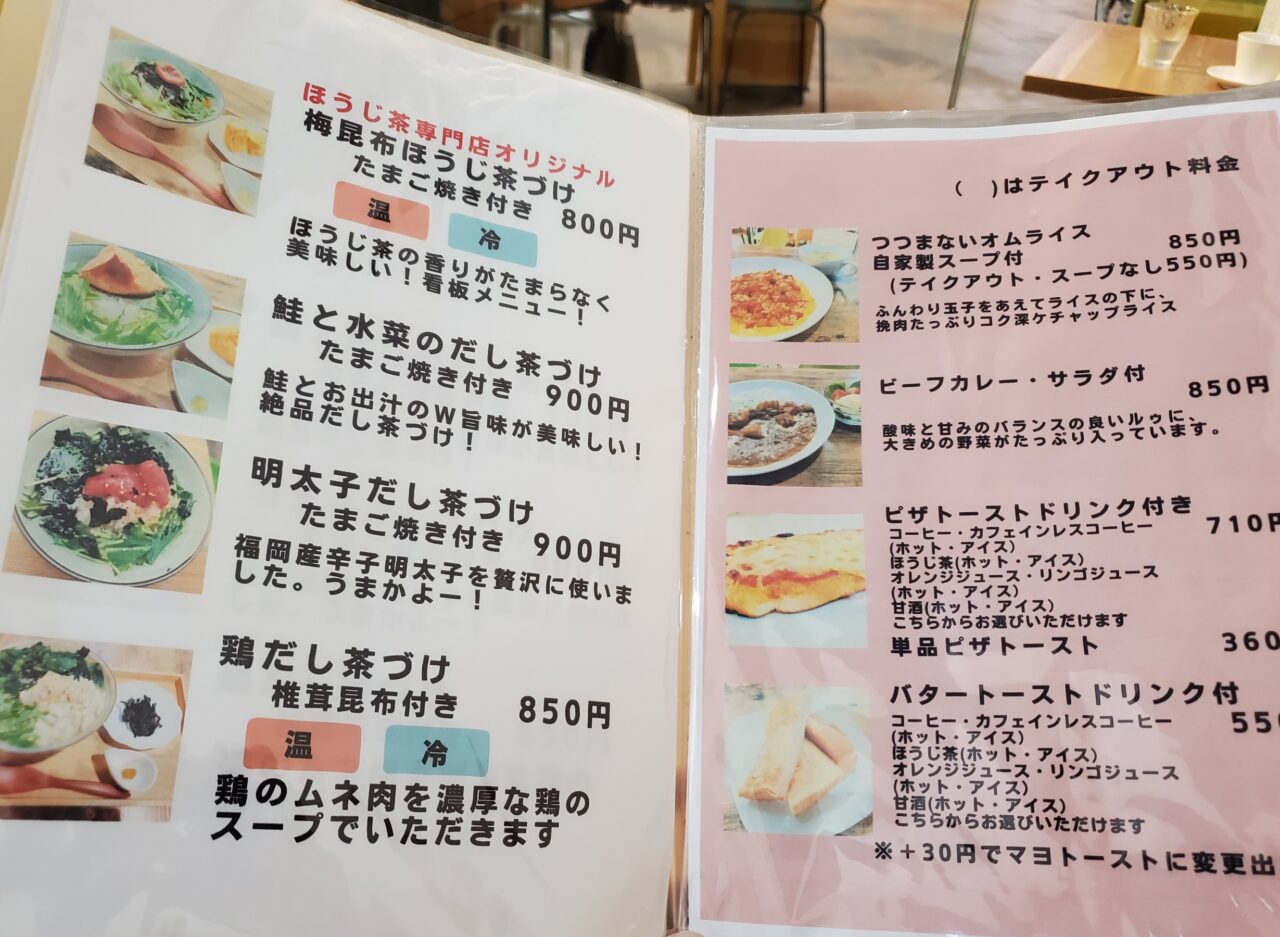 ほうじ茶専門店オリジナル
梅昆布ほうじ茶づけ
たまご焼き付き 800円
温 冷
ほうじ茶の香りがたまらなく
美味しい！看板メニュー！
鮭と水菜のだし茶づけ
たまご焼き付き 900円
鮭とお出汁のW旨味が美味しい！
絶品だし茶づけ！
明太子だし茶づけ
たまご焼き付き 900円
福岡産辛子明太子を贅沢に使いま
した。うまかよー！
鶏だし茶づけ
椎茸昆布付き 850円
温 冷
鶏のムネ肉を濃厚な鶏の
スープでいただきます
(　)はテイクアウト料金
つつまないオムライス 850円
自家製スープ付
(テイクアウト・スープなし550円)
ふんわり玉子をあえてライスの下に、
挽肉たっぷりコク深ケチャップライス
ビーフカレー・サラダ付 850円
酸味と甘みのバランスの良いルゥに、
大きめの野菜がたっぷり入っています。
ピザトーストドリンク付き 710円
コーヒー・カフェインレスコーヒー
(ホット・アイス)
ほうじ茶(ホット・アイス)
オレンジジュース・リンゴジュース
(ホット・アイス)
甘酒(ホット・アイス)
こちらからお選びいただけます
単品ピザトースト 360
バタートーストドリンク付 550
コーヒー・カフェインレスコーヒー
(ホット・アイス)
ほうじ茶(ホット・アイス)
オレンジジュース・リンゴジュース
(ホット・アイス)
甘酒(ホット・アイス)
こちらからお選びいただけます
※＋30円でマヨトーストに変更出